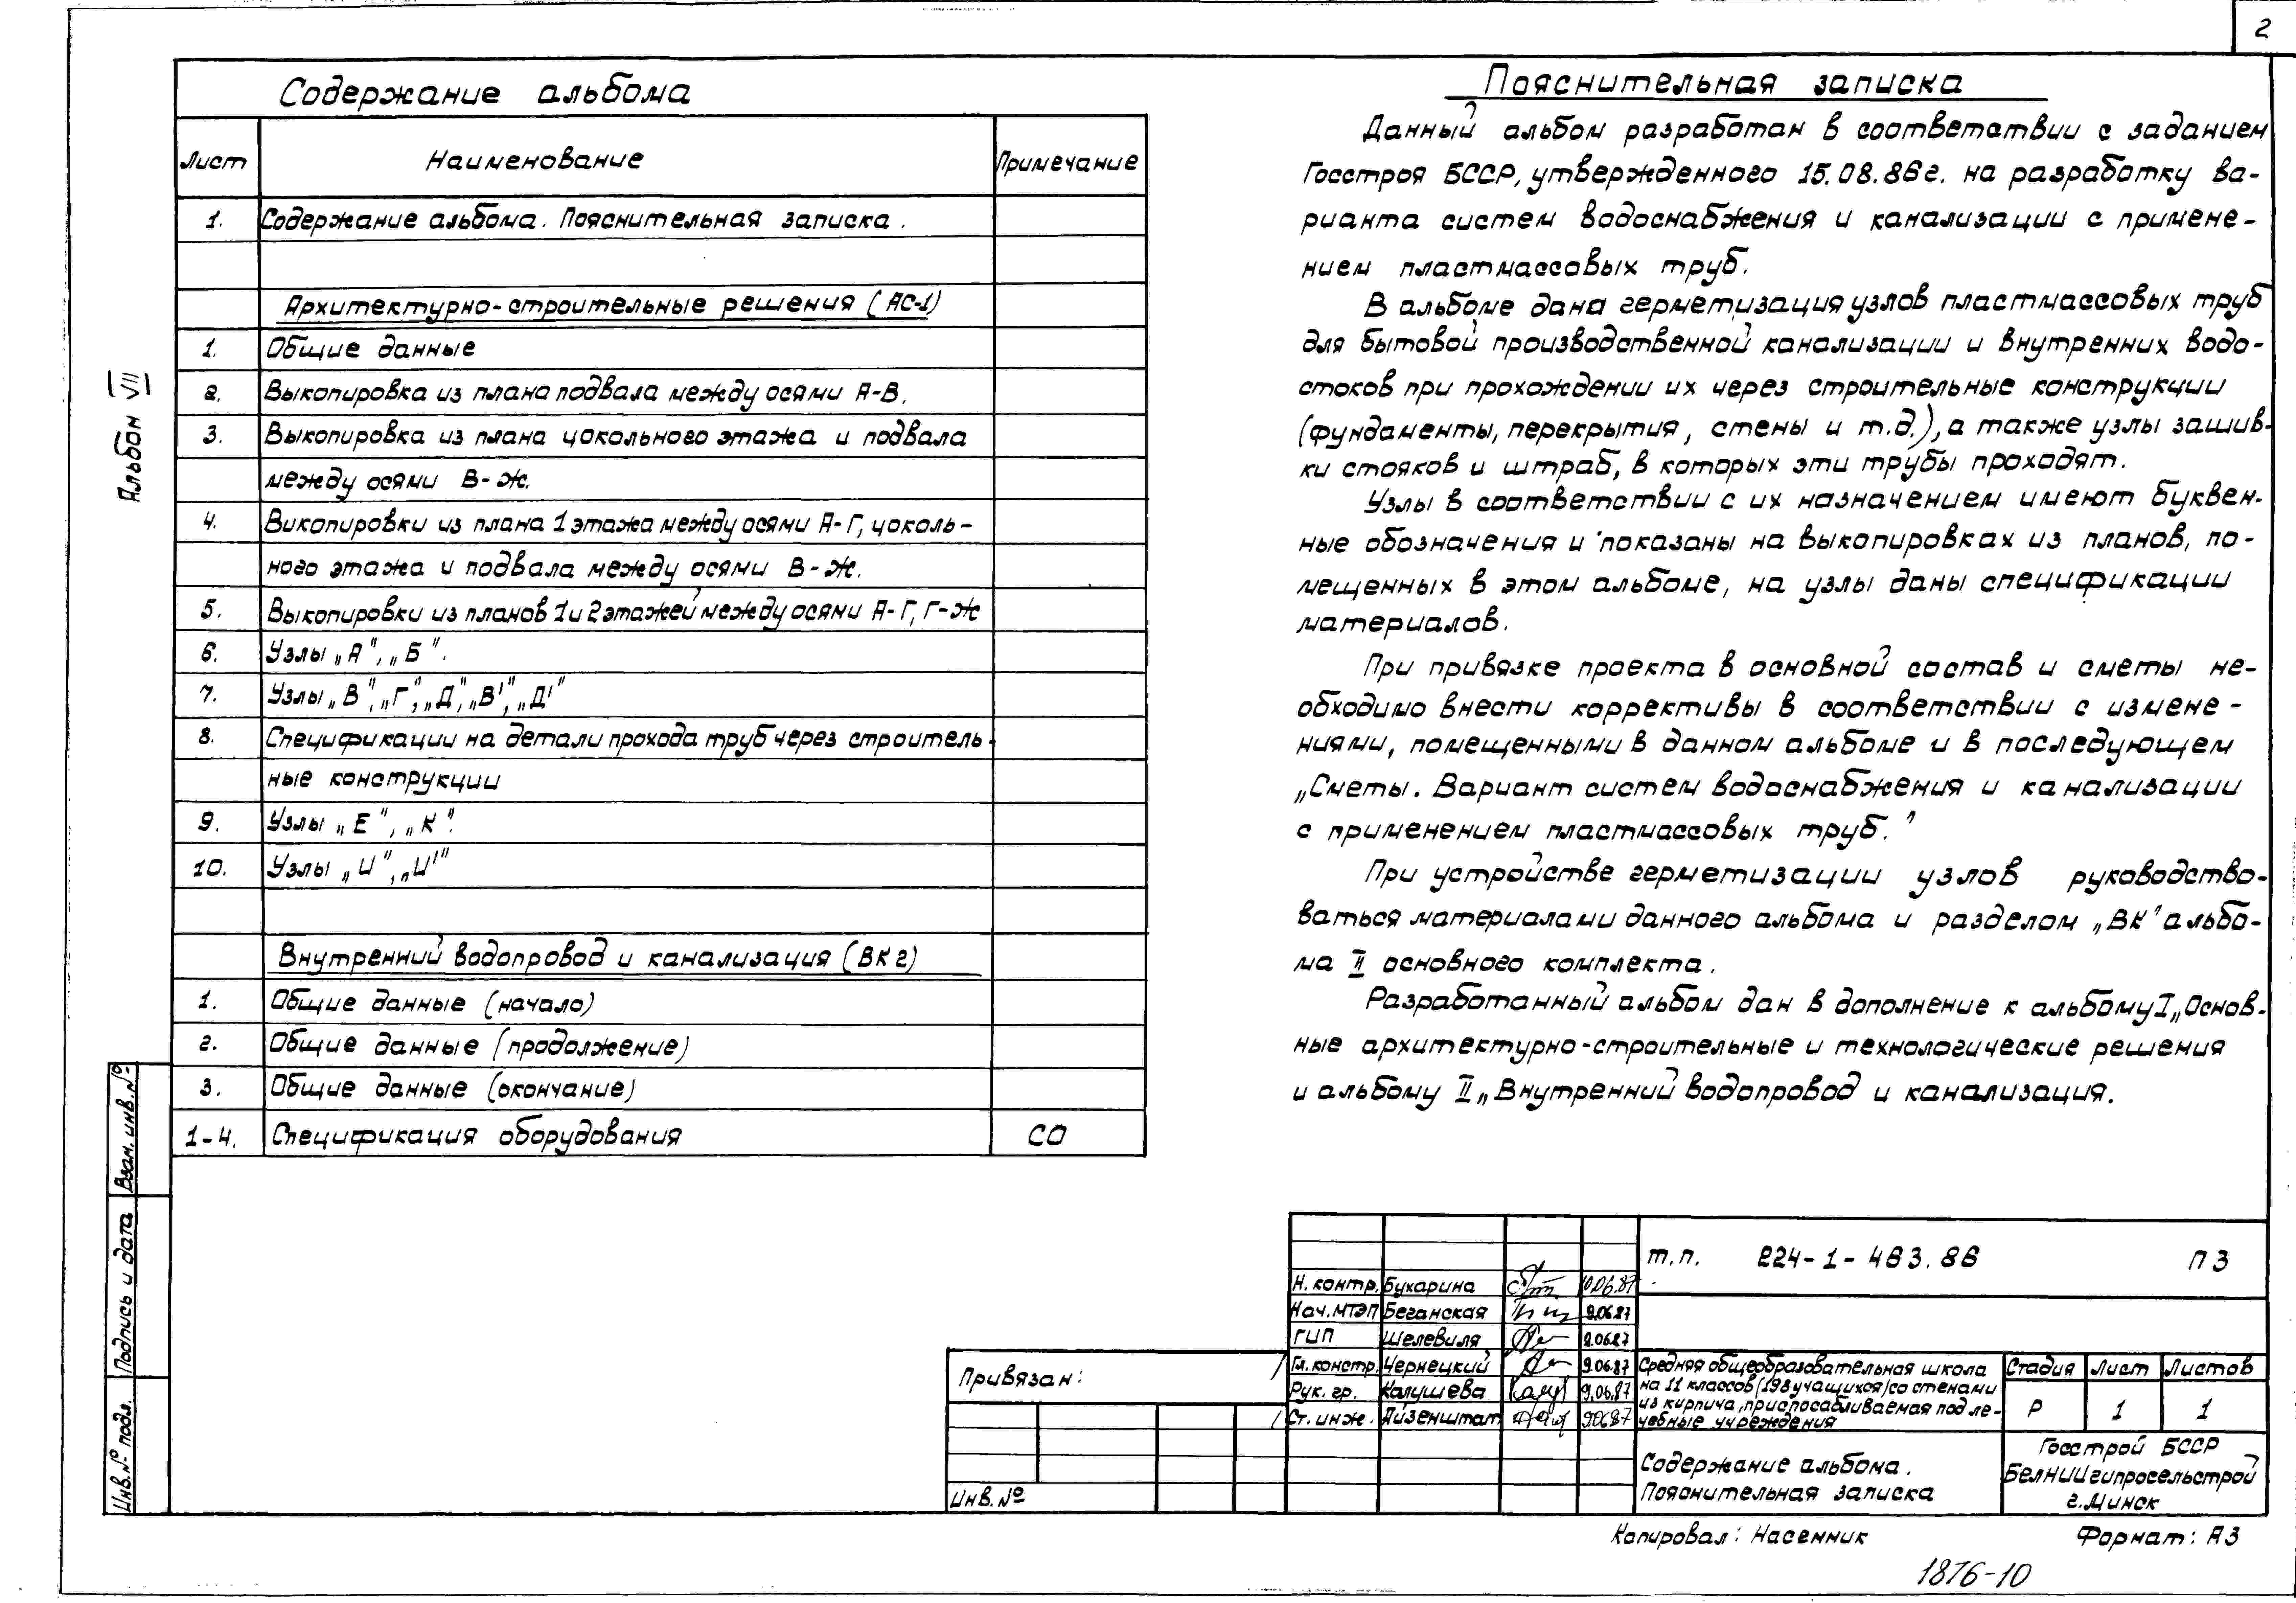 2
Содержание альбома
Лист Наименование Примечание
1. Содержание альбома. Пояснительная записка.
Архитектурно-строительные решения (АС-1)
1. Общие данные
2. Выкопировка из плана подвала между осями А-В.
3. Выкопировка из плана цокольного этажа и подвала
между осями В-Ж.
4. Викопировки из плана 1 этажа между осями А-Г, цоколь-
ного этажа и подвала между осями В-Ж.
5. Выкопировки из планов 1 и 2 этажей между осями А-Г, Г-Ж
6. Узлы „А", „Б".
7. Узлы „В", „Г", „Д", „В'", „Д'"
8. Спецификации на детали прохода труб через строитель-
ные конструкции
9. Узлы „Е", „К".
10. Узлы „И", „И'"
Внутренний водопровод и канализация (ВК2)
1. Общие данные (начало)
2. Общие данные (продолжение)
3. Общие данные (окончание)
1-4. Спецификация оборудования СО
Альбом VII
Пояснительная записка
Данный альбом разработан в соответствии с заданием
Госстроя БССР, утвержденного 15.08.86г. на разработку ва-
рианта систем водоснабжения и канализации с примене-
нием пластмассовых труб.
В альбоме дана герметизация узлов пластмассовых труб
для бытовой производственной канализации и внутренних водо-
стоков при прохождении их через строительные конструкции
(фундаменты, перекрытия, стены и т.д.), а также узлы зашив-
ки стояков и штраб, в которых эти трубы проходят.
Узлы в соответствии с их назначением имеют буквен-
ные обозначения и показаны на выкопировках из планов, по-
мещенных в этом альбоме, на узлы даны спецификации
материалов.
При привязке проекта в основной состав и сметы не-
обходимо внести коррективы в соответствии с измене-
ниями, помещенными в данном альбоме и в последующем
„Сметы. Вариант систем водоснабжения и канализации
с применением пластмассовых труб."
При устройстве герметизации узлов руководство-
ваться материалами данного альбома и разделом „ВК" альбо-
ма II основного комплекта.
Разработанный альбом дан в дополнение к альбому I „Основ-
ные архитектурно-строительные и технологические решения
и альбому II „Внутренний водопровод и канализация.
Взам. инв. №
Подпись и дата
Инв. № подл.
Привязан:
Инв. №
Н. контр. Бухарина 10.06.87
Нач. МТЭП Беганская 9.06.87
ГИП Шелевиля 9.06.87
Гл. констр. Чернецкий 9.06.87
Рук. гр. Калушева 9.06.87
Ст. инж. Айзенштат 9.06.87
т.п. 224-1-463.86 ПЗ
Средняя общеобразовательная школа
на 11 классов (198 учащихся) со стенами
из кирпича, приспосабливаемая под ле-
чебные учреждения
Стадия Лист Листов
Р 1 1
Содержание альбома.
Пояснительная записка
Госстрой БССР
БелНИИгипросельстрой
г. Минск
Копировал: Насенник Формат: А3
1876-10